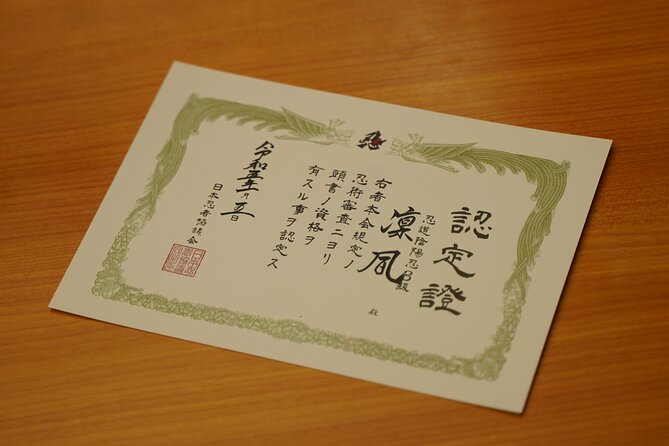 認定證
忍道陰陽忍B級
凛風
殿
右者本会規定ノ
忍術審査ニヨリ
頭書ノ資格ヲ
有スル事ヲ認定ス
令和五年 月 五日
日本忍者協議会